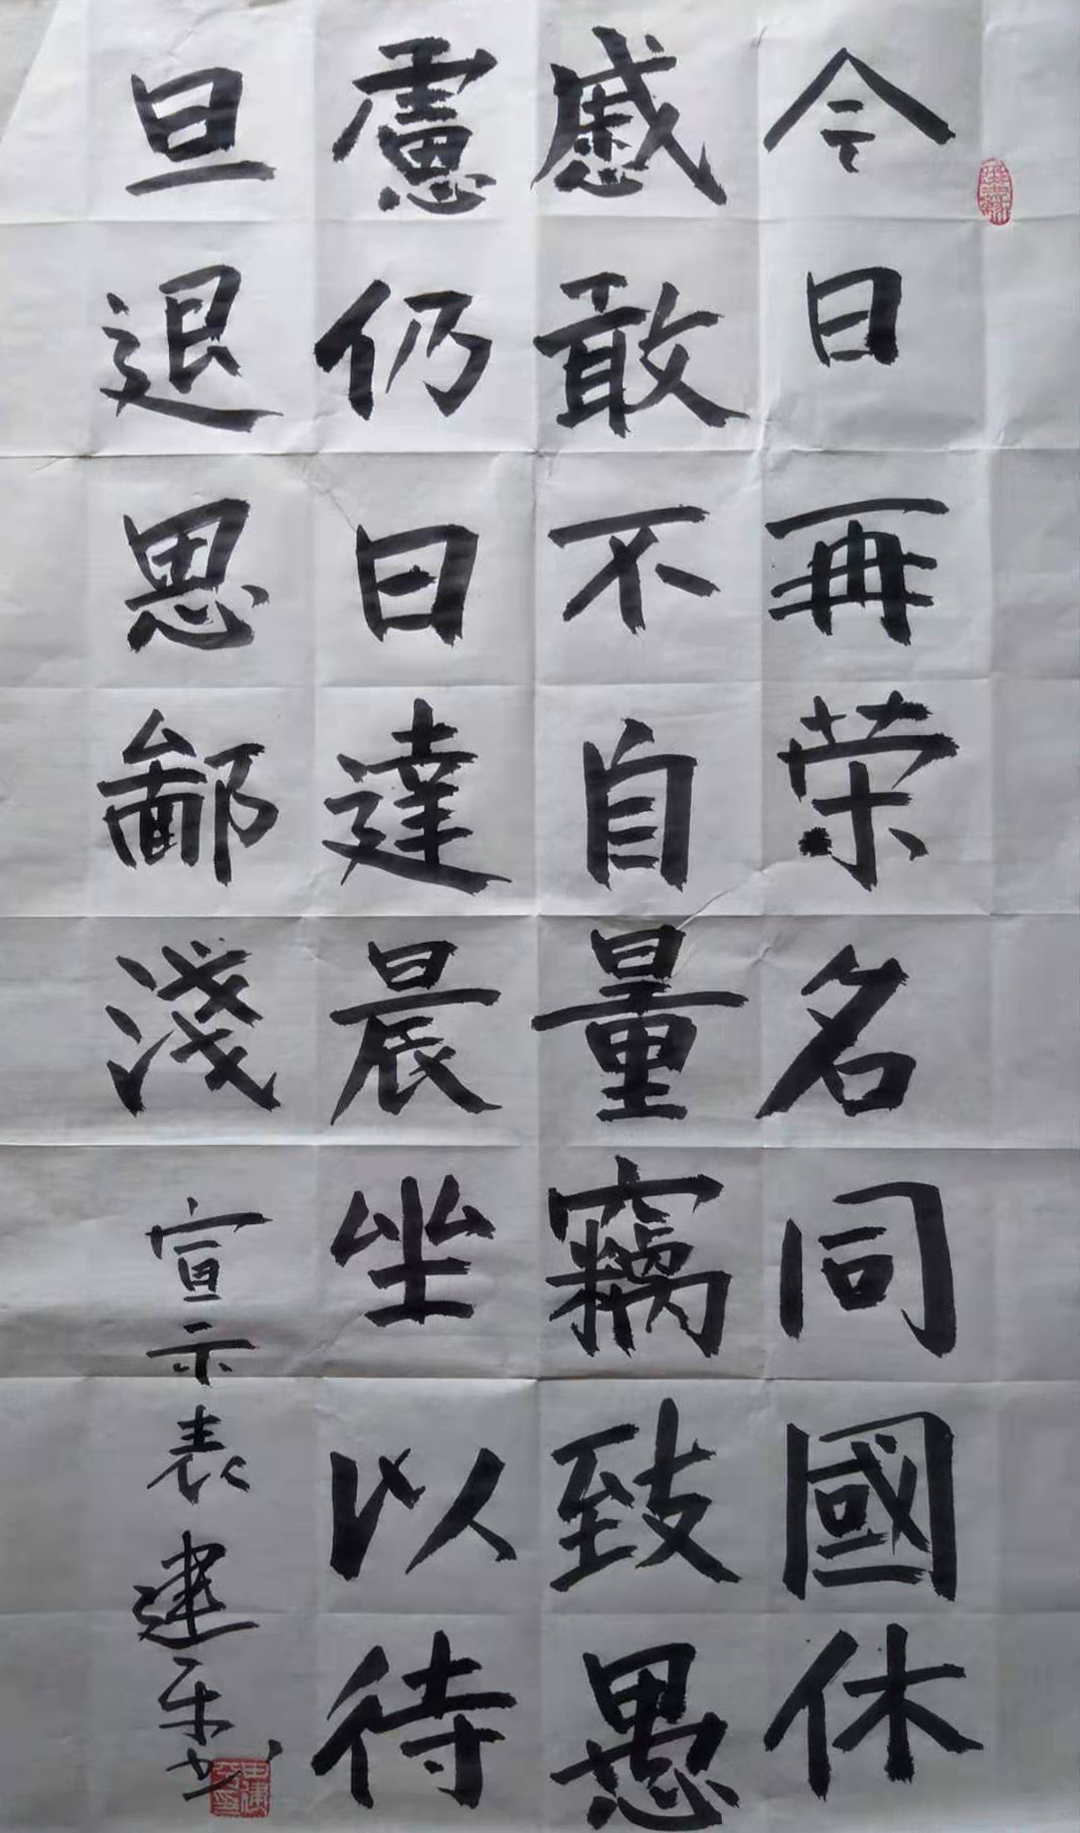 今日再荣名同國休
慼敢不自量竊致愚
慮仍日達晨坐以待
旦退思鄙淺
宣示表 建平书